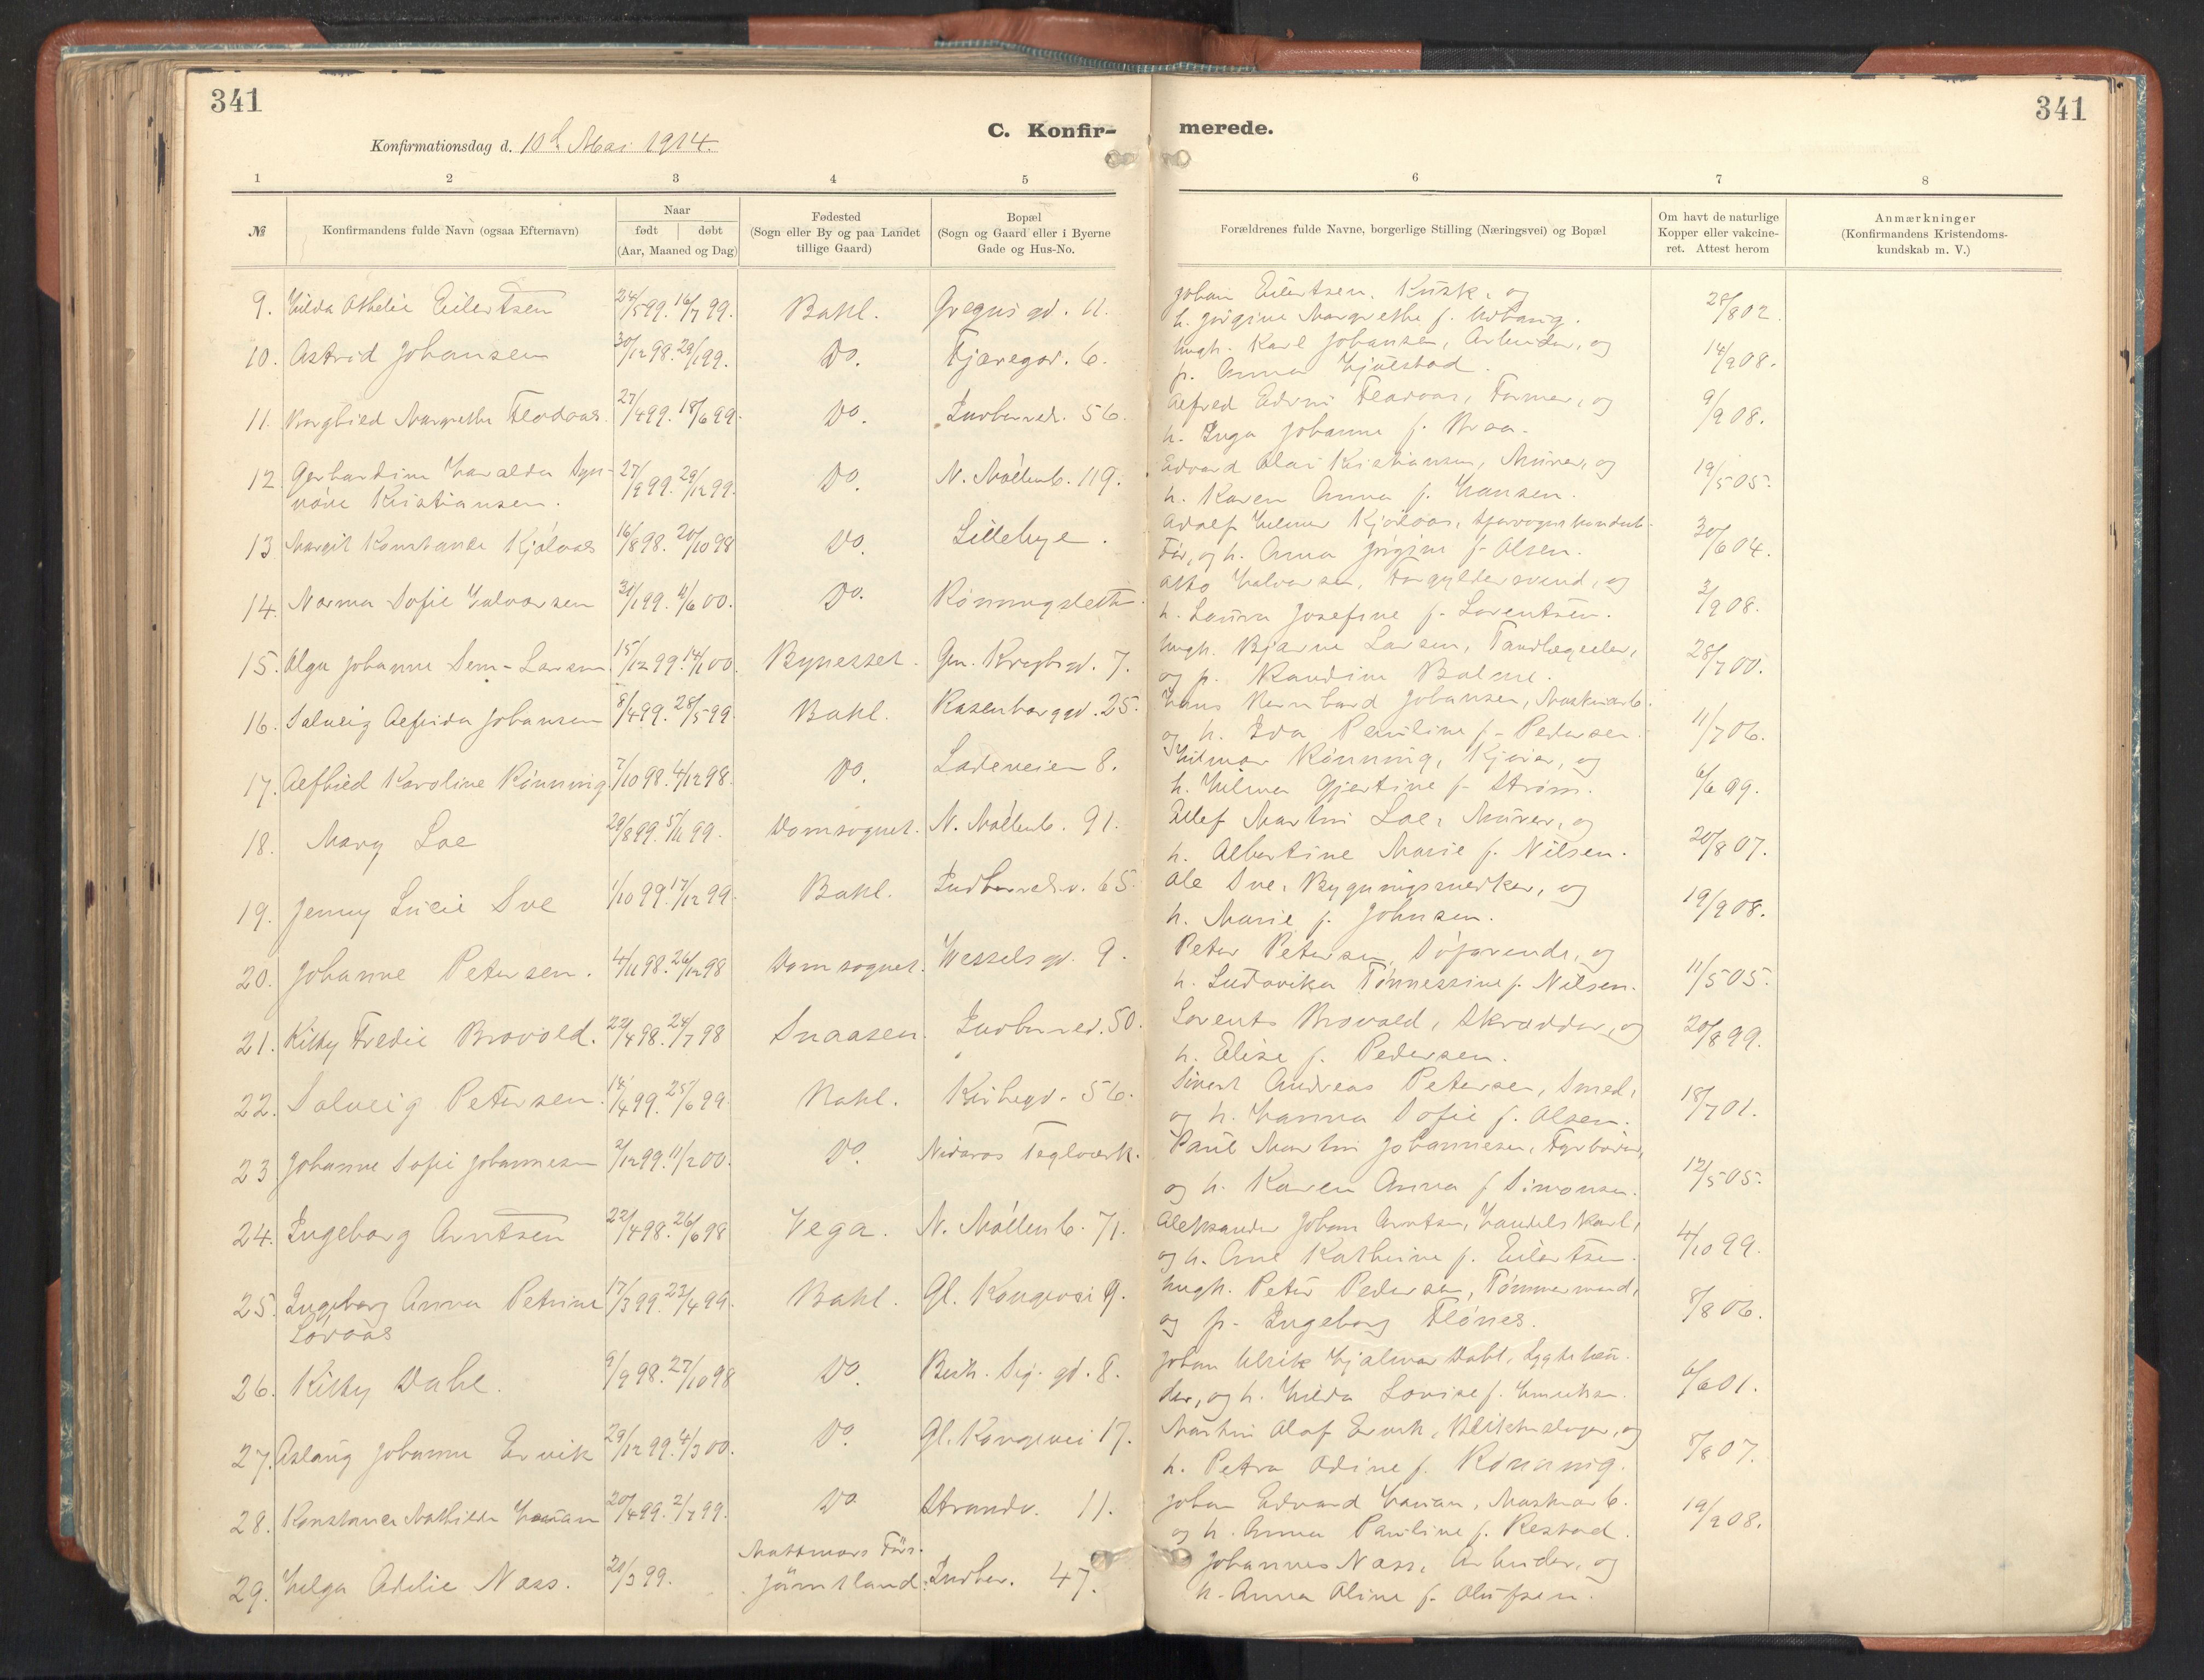 341
341
C. Konfir- merede.
Konfirmationsdag d. 10d Mai 1914.
1 2 3 4 5 6 7 8
№
Konfirmandens fulde Navn (ogsaa Efternavn)
Naar
født døbt
(Aar, Maaned og Dag)
Fødested
(Sogn eller By og paa Landet
tillige Gaard)
Bopæl
(Sogn og Gaard eller i Byerne
Gade og Hus-No.
Forældrenes fulde Navne, borgerlige Stilling (Næringsvei) og Bopæl
Om havt de naturlige
Kopper eller vakcine-
ret. Attest herom
Anmærkninger
(Konfirmandens Kristendoms-
kundskab m. V.)
Johan Eilertsen, Kusk, og
9. Hilda Athelie Eilertsen 24/5 99. 16/7 99. Bakl. Gregusgd. 11. 28/8 02.
h. Jørgine Margrethe f.
Ungk. Karl Johansen, Arbeider, og
10. Astrid Johansen 30/12 98. 29/1 99. Do. Fjæregd. 6. 14/9 08.
p. Anna Hjulstad.
Alfred Edvin Flodaas, Former, og
11. Borghild Margrethe Flodaas. 27/4 99. 18/6 99. Do. Indherredv. 56. 9/9 08.
h. Inga Johanne f. Braa.
Edvard Olai Kristiansen, Murer, og
12. Gerhardine Haralda Syn- 27/9 99. 29/12 99. Do. N. Møllenb. 119. 19/5 05.
nøve Kristiansen.
h. Karen Anna f. Hansen.
Adolf Hilmer Kjølaas, Sporvognskonduk-
13. Margit Konstanse Kjølaas 16/8 98. 20/10 98 Do. Lillebye. 30/6 04.
tør, og h. Anna Jørgine f. Olsen.
Otto Halvorsen, Forgyldersvend, og
14. Norma Sofie Halvorsen 31/1 99. 4/6 00. Do. Rønningsletten. 3/9 08.
h. Laura Josefine f. Lorentsen.
Ungk. Bjarne Larsen, Tandlægeelev,
15. Olga Johanne Dem-Larsen. 15/12 99. 14/1 00. Bynesset. Gen. Kroghsgd. 7. 28/7 00.
og p. Randine Balme.
Hans Bernhard Johansen, Maskinarb.
16. Solveig Alfrida Johansen 8/4 99. 28/5 99. Bakl. Rosenborggd. 25. 11/7 06.
og h. Ida Pauline f. Pedersen.
Hilmar Rønning, Kjører, og
17. Alfhild Karoline Rønning 7/10 98. 4/12 98. Do. Ladeveien 8. 6/6 99.
h. Hilma Gjertine f. Strøm.
Ellef Martin Loe, Murer, og
18. Mary Loe 29/8 99. 5/11 99. Domsognet. N. Møllenb. 91. 20/8 07.
h. Albertine Marie f. Nilsen.
Ole Sve, Bygningssnedker, og
19. Jenny Lucie Sve 1/10 99. 17/12 99. Bakl. Indherredsv. 65. 19/9 08.
h. Marie f. Johnsen.
Peter Petersen, Søfarende, og
20. Johanne Petersen. 4/11 98. 26/12 98 Domsognet. Wesselsgd. 9. 11/5 05.
h. Ludovika Tønnessine f. Nilsen.
Lorents Brovold, Skrædder, og
21. Kitty Fredie Brovold. 22/4 98. 24/7 98 Snaasen. Indherred. 50. 20/8 99.
h. Elise f. Pedersen.
Sivert Andreas Petersen, Smed,
22. Solveig Petersen. 14/4 99. 25/6 99. Bakl. Kirkegd. 56. 18/7 01.
og h. Hanna Sofie f. Olsen.
Paul Martin Johannesen, Fyrbøder,
23. Johanne Sofie Johannesen 2/12 99. 11/2 00. Do. Nidaros Teglværk. 12/5 05.
og h. Karen Anna f. Simonsen.
Aleksander Johan Arntsen, Handelskarl,
24. Ingeborg Arntsen 22/4 98. 26/6 98 Vega. N. Møllenb. 71. 4/10 99.
og h. Ane Kathrine f. Eilertsen.
Ungk. Peter Pedersen, Tømmermand,
25. Ingeborg Anna Petrine 17/3 99. 23/4 99. Bakl. Gl. Kongevei 9. 8/8 06.
Løvaas
og p. Ingeborg Flønes.
Johan Ulrik Hjalmar Dahl, Lygtetæn-
26. Kitty Dahl. 9/9 98. 27/10 98 Do. Bisk. Sig. gd. 8. 6/6 01.
der, og h. Hilda Lovise f.
Martin Olaf Ervik, Blikkenslager, og
27. Aslaug Johanne Ervik 29/12 99. 4/3 00. Do. Gl. Kongevei 17. 8/8 07.
h. Petra Odine f. Rønning.
Johan Edvard Hanan, Maskinarb.
28. Konstance Mathilde Hanan 20/4 99. 2/7 99. Do. Strandv. 11. 19/9 08.
og h. Anna Pauline f. Restad.
Mattmars Förs.
Johannes Næss, Arbeider, og
29. Helga Adelie Næss. 21/3 99. Jämtland. Indher. 47.
h. Anna Oline f. Olufsen.